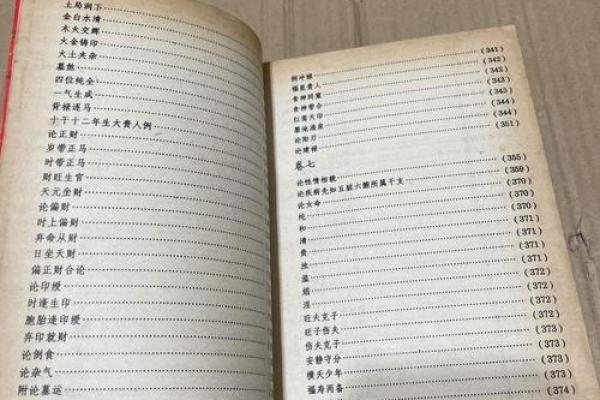 土局润下
金白水清
木火交辉
火金铸印
火土夹杂
墓煞
四位纯全
一气生成
背禄逐马
十干十二年生大贵人例
论正财
岁带正马
时带正马
财旺生官
天元坐财
论偏财
时上偏财
弃命从财
日坐天财
偏正财合论
论印绶
时逢生印
胞胎逢印绶
弃印就财
论倒食
论杂气
附论墓运
倒冲禄 (341)
福星贵人 (342)
食神同窠 (342)
食神带合 (343)
红鸾天印 (343)
墓地涌泉 (344)
论阳刃 (344)
论建禄 (351)
卷七
论性情相貌 (355)
论疾病先如五脏六腑所属干支 (359)
论女命 (370)
纯 (370)
和 (371)
清 (371)
贵 (371)
浊 (371)
滥 (372)
娼 (372)
淫 (372)
旺夫克子 (372)
旺子伤夫 (373)
伤夫克子 (373)
安静守分 (373)
横夭少年 (373)
福寿两备 (374)